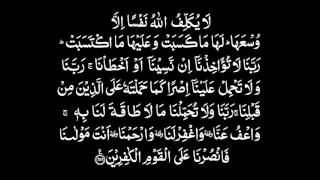 لَا يُكَلِّفُ اللّٰهُ نَفْسًا اِلَّا
وُسْعَهَا ؕ لَهَا مَا كَسَبَتْ وَعَلَيْهَا مَا اكْتَسَبَتْ ؕ
رَبَّنَا لَا تُؤَاخِذْنَاۤ اِنْ نَّسِيْنَاۤ اَوْ اَخْطَاْنَا ۚ رَبَّنَا
وَلَا تَحْمِلْ عَلَيْنَاۤ اِصْرًا كَمَا حَمَلْتَهٗ عَلَى الَّذِيْنَ مِنْ
قَبْلِنَا ۚ رَبَّنَا وَلَا تُحَمِّلْنَا مَا لَا طَاقَةَ لَنَا بِهٖ ۚ
وَاعْفُ عَنَّا ۥ وَاغْفِرْ لَنَا ۥ وَارْحَمْنَا ۥ اَنْتَ مَوْلٰىنَا
فَانْصُرْنَا عَلَى الْقَوْمِ الْكٰفِرِيْنَ